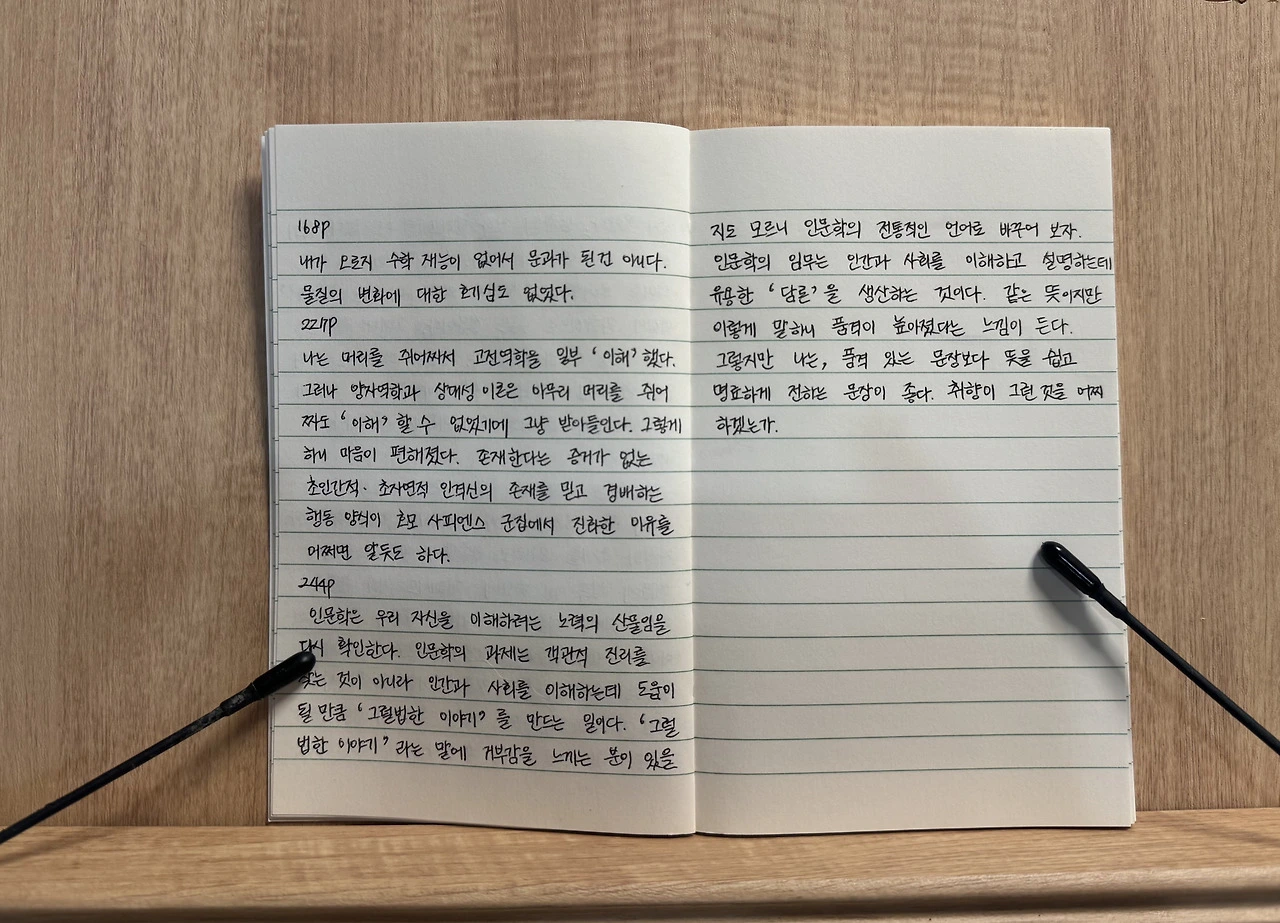 168P
내가 오로지 수학 재능이 없어서 문과가 된건 아니다.
물질의 변화에 대한 호기심도 없었다.
227P
나는 머리를 쥐어짜서 고전역학을 일부 '이해'했다.
그러나 양자역학과 상대성이론은 아무리 머리를 쥐어
짜도 '이해'할 수 없었기에 그냥 받아들인다. 그렇게
하니 마음이 편해졌다. 존재한다는 증거가 없는
초인간적·초자연적 인격신의 존재를 믿고 경배하는
행동 양식이 호모 사피엔스 군집에서 진화한 이유를
어쩌면 알듯도 하다.
244P
인문학은 우리 자신을 이해하려는 노력의 산물임을
다시 확인한다. 인문학의 과제는 객관적 진리를
찾는 것이 아니라 인간과 사회를 이해하는데 도움이
될 만큼 '그럴법한 이야기'를 만드는 일이다. '그럴
법한 이야기'라는 말에 거부감을 느끼는 분이 있을
지도 모르니 인문학의 전통적인 언어로 바꾸어 보자.
인문학의 임무는 인간과 사회를 이해하고 설명하는데
유용한 '담론'을 생산하는 것이다. 같은 뜻이지만
이렇게 말하니 품격이 높아졌다는 느낌이 든다.
그렇지만 나는, 품격 있는 문장보다 뜻을 쉽고
명료하게 전하는 문장이 좋다. 취향이 그런 것을 어찌
하겠는가.